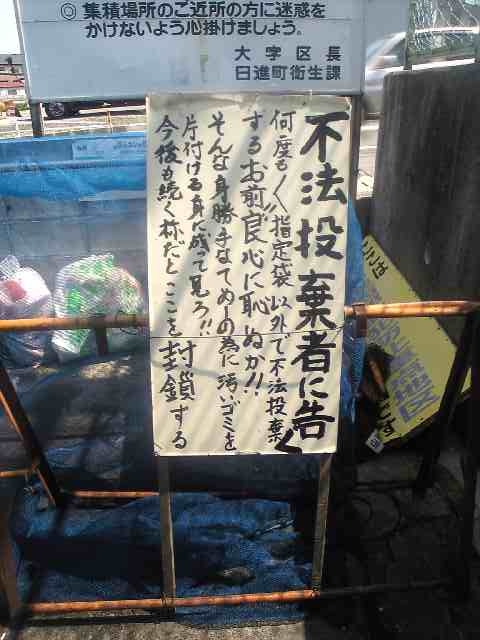 ◎集積場所のご近所の方に迷惑を
かけないよう心掛けましょう。
大字区長
日進町衛生課
不法投棄者に告ぐ
何度も〱指定袋以外で不法投棄
するお前良心に恥ぬか!!
そんな身勝手なてめーの為に汚いゴミを
片付ける身に成って見ろ!!
今後も続く様だとここを封鎖する